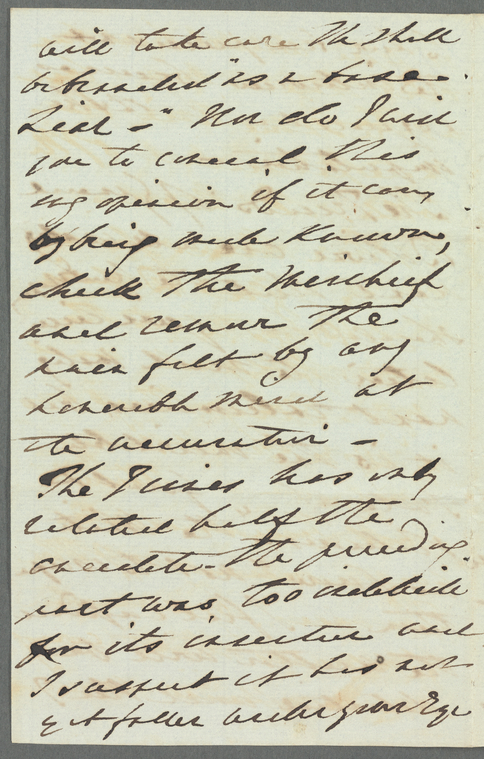 will take care He shall
be branded "as a base
Liar -" Nor do I wish
you to conceal this
my opinion if it can,
by being made Known,
check the Mischief
and remove the
pain felt by any
honorable mind at
the accusation -
The Times has only
related half the
anecdote - the preceding
part was too indelicate
for its insertion and
I suspect it has not
yet fallen under your Eye